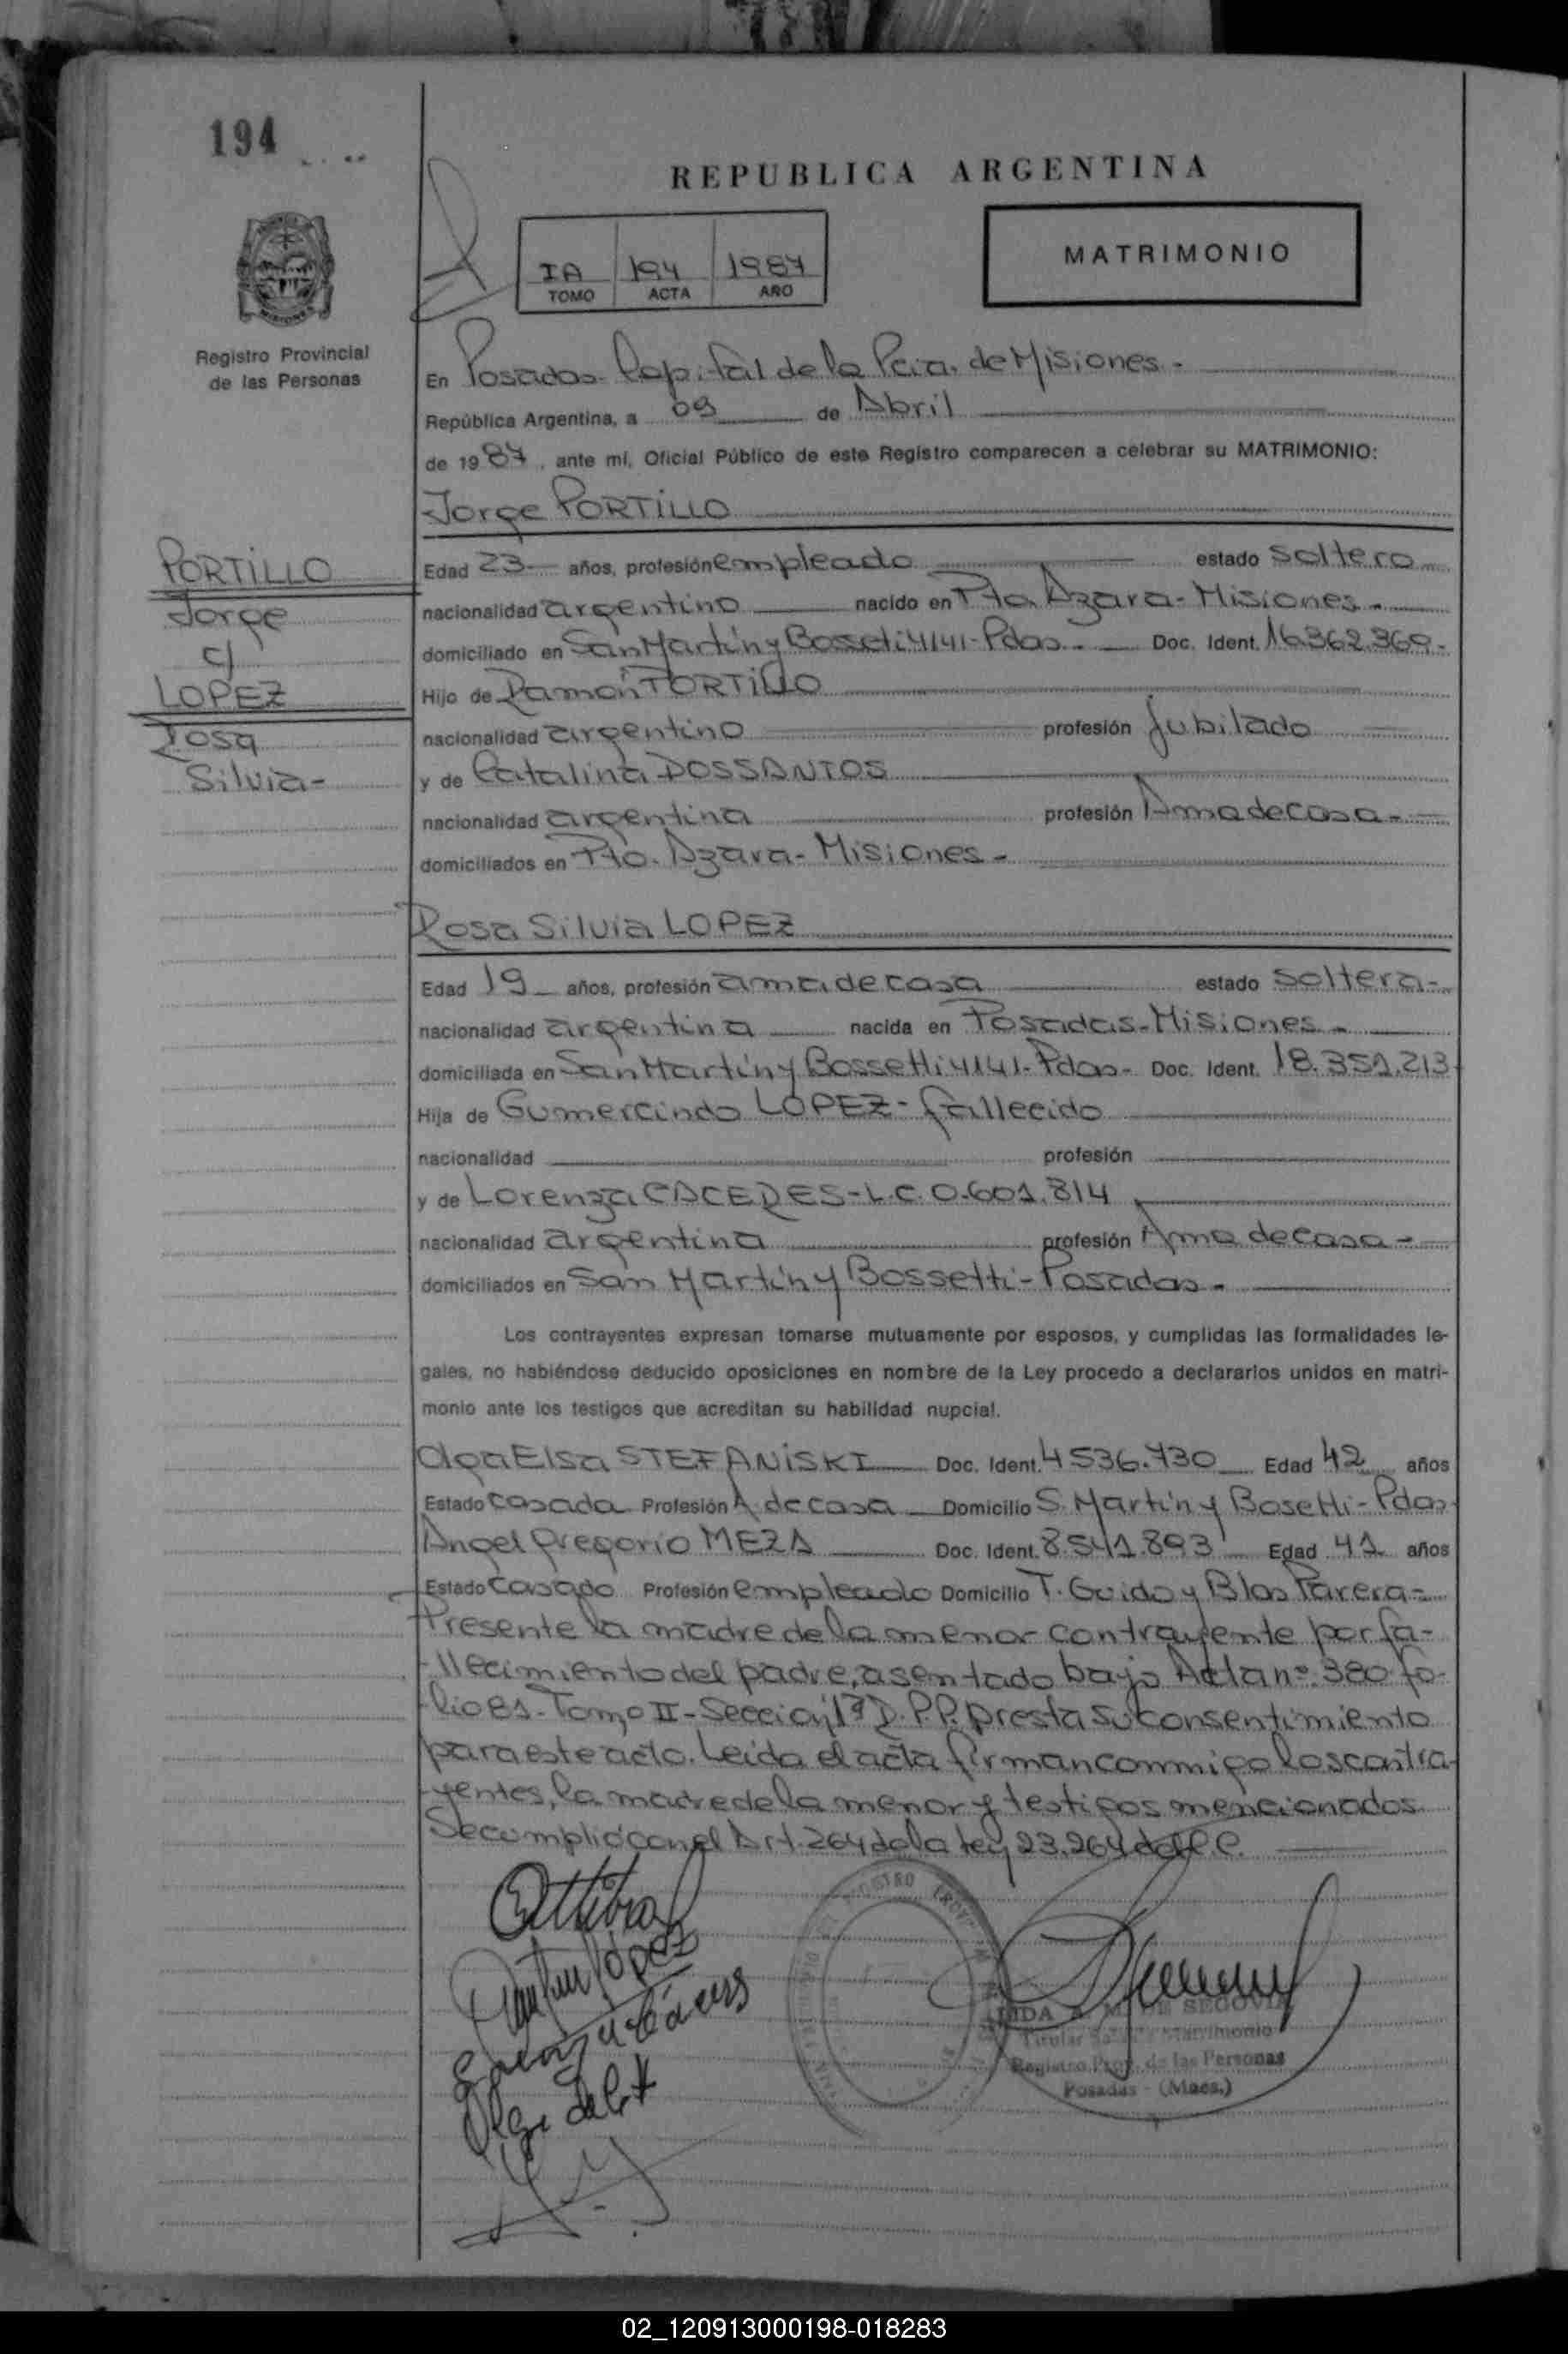 194
REPUBLICA ARGENTINA
IA 194 1987
TOMO ACTA AÑO
MATRIMONIO
Registro Provincial
de las Personas
En Posadas Capital de la Pcia. de Misiones.-
República Argentina, a 09 de Abril
de 1987, ante mí, Oficial Público de este Registro comparecen a celebrar su MATRIMONIO:
Jorge PORTILLO
PORTILLO
Jorge
c/
LOPEZ
Rosa
Silvia-
Edad 23 años, profesión empleado estado soltero
nacionalidad argentino nacido en Pto. Azara- Misiones.-
domiciliado en San Martín y Bosseti 4141- Pdas.- Doc. Ident. 16.362.369.-
Hijo de Ramón PORTILLO
nacionalidad argentino profesión Jubilado
y de Catalina DOSSANTOS
nacionalidad argentina profesión Ama de casa.-
domiciliados en Pto. Azara- Misiones.-
Rosa Silvia LOPEZ
Edad 19 años, profesión ama de casa estado soltera.-
nacionalidad argentina nacida en Posadas-Misiones.-
domiciliada en San Martín y Bossetti 4141- Pdas- Doc. Ident. 18.351.213
Hija de Gumercindo LOPEZ- fallecido
nacionalidad profesión
y de Lorenza CACERES- L.C. 0.601.814
nacionalidad argentina profesión Ama de casa-
domiciliados en San Martín y Bossetti- Posadas.-
Los contrayentes expresan tomarse mutuamente por esposos, y cumplidas las formalidades le-
gales, no habiéndose deducido oposiciones en nombre de la Ley procedo a declararlos unidos en matri-
monio ante los testigos que acreditan su habilidad nupcial.
Olga Elsa STEFANISKI Doc. Ident. 4536.730 Edad 42 años
Estado casada Profesión A. de casa Domicilio S. Martín y Bosetti- Pdas.
Angel Gregorio MEZA Doc. Ident. 8.541.893 Edad 41 años
Estado casado Profesión empleado Domicilio T. Guido y Blas Parera-
Presente la madre de la menor contrayente por fa-
llecimiento del padre, asentado bajo Acta nº 380 fo-
lio 81- Tomo II- Sección 1ª D.P.P. presta su consentimiento
para este acto. Leída el acta firman conmigo los contra-
yentes, la madre de la menor y testigos mencionados
Se cumplió con el Art. 264 de la ley 23.264 del C.C.
López
M. DE SEGOVIA
Titular Matrimonio
Registro Prov. de las Personas
Posadas - (Mnes.)
02_120913000198-018283